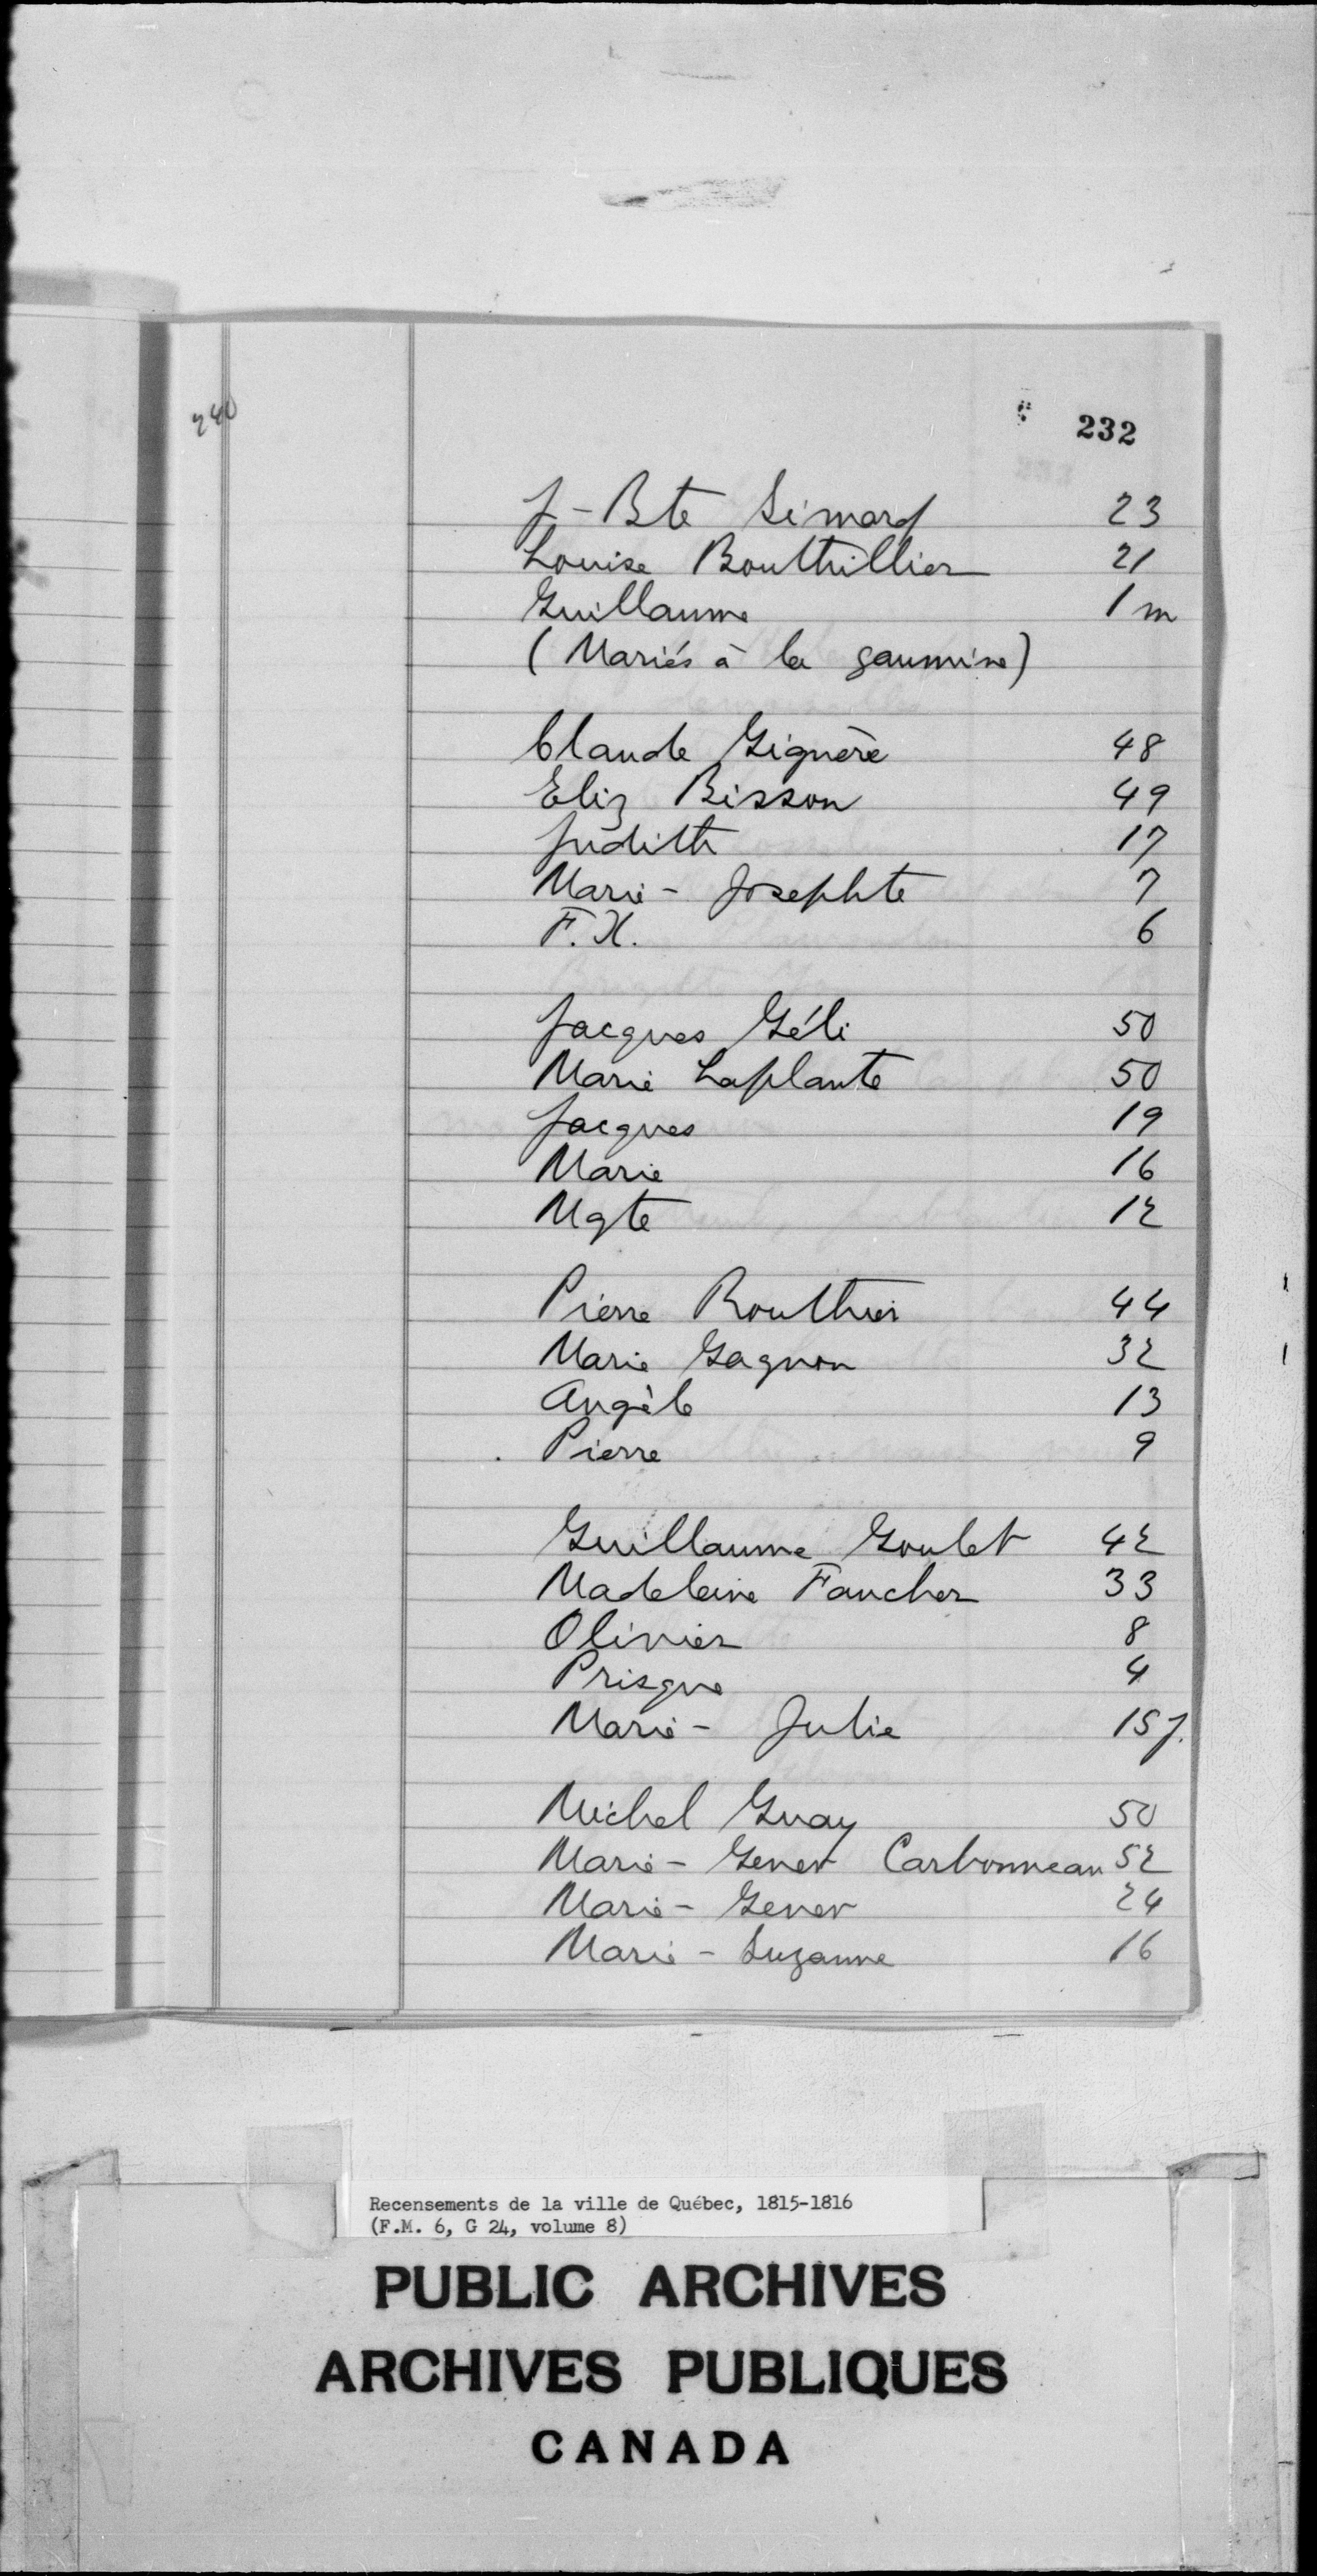 240
232
J-Bte Simard 23
Louise Bouthillier 21
Guillaume 1 m
(Mariés à la gaumine)
Claude Giguère 48
Eliz Bisson 49
Judith 17
Marie-Josephte 7
F.X. 6
Jacques Géli 50
Marie Laplante 50
Jacques 19
Marie 16
Mgte 12
Pierre Routhier 44
Marie Gagnon 32
Angèle 13
Pierre 9
Guillaume Goulet 42
Madeleine Faucher 33
Olivier 8
Prisque 4
Marie-Julie 15 j.
Michel Guay 50
Marie-Genev Carbonneau 52
Marie-Genev 24
Marie-Suzanne 16
Recensements de la ville de Québec, 1815-1816
(F.M. 6, G 24, volume 8)
PUBLIC ARCHIVES
ARCHIVES PUBLIQUES
CANADA